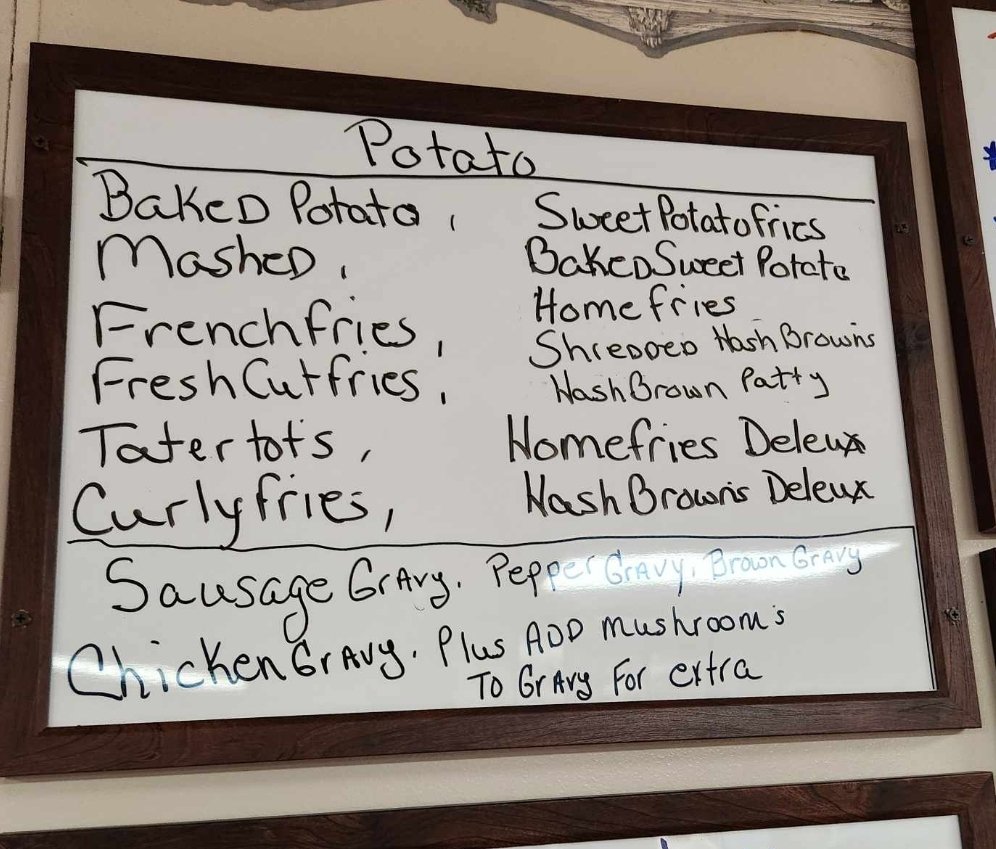 Potato
Baked Potato,
Mashed,
Frenchfries,
Fresh Cut fries,
Tater tot's,
Curly fries,
Sweet Potato fries
Baked Sweet Potato
Home fries
Shredded Hash Browns
Hash Brown Patty
Homefries Deleux
Hash Browns Deleux
Sausage Gravy. Pepper Gravy. Brown Gravy
Chicken Gravy. Plus ADD mushroom's
To Gravy For extra